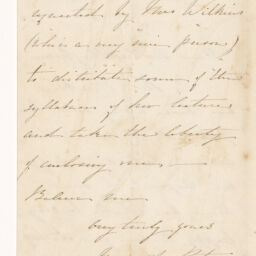 requested by Mrs Wilkins
(who is a very nice person)
to distribute some of the
syllabuses of her lectures
and take the liberty
of enclosing one. —
Believe me
very truly yours